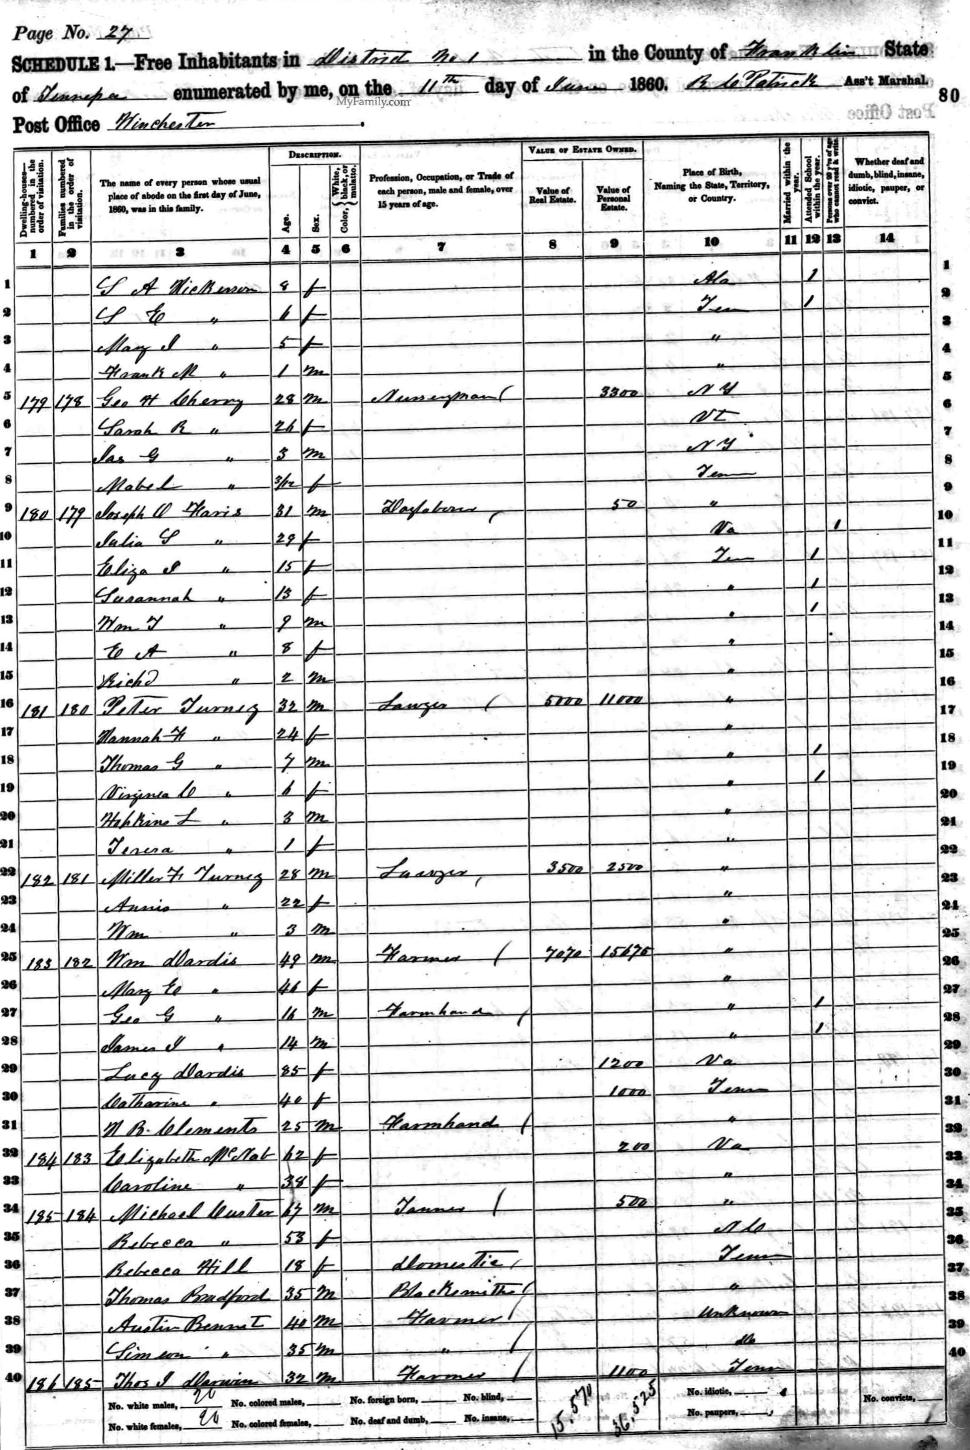 Page No. 27
SCHEDULE 1.—Free Inhabitants in District No 1 in the County of Franklin State
of Tennessee enumerated by me, on the 11th day of June 1860. Ass't Marshal.
MyFamily.com
80
Post Office Winchester
Dwelling-houses—numbered in the order of visitation.
Families numbered in the order of visitation.
The name of every person whose usual place of abode on the first day of June, 1860, was in this family.
DESCRIPTION.
Age.
Sex.
Color, { White, black, or mulatto.
Profession, Occupation, or Trade of each person, male and female, over 15 years of age.
VALUE OF ESTATE OWNED.
Value of Real Estate.
Value of Personal Estate.
Place of Birth, Naming the State, Territory, or Country.
Married within the year.
Attended School within the year.
Persons over 20 y'rs of age who cannot read & write.
Whether deaf and dumb, blind, insane, idiotic, pauper, or convict.
1 2 3 4 5 6 7 8 9 10 11 12 13 14
1 S A Nickerson 8 f Ala 1 1
2 S E " 6 f Ten 1 2
3 Mary J " 5 f " 3
4 Frank M " 1 m " 4
5 179 178 Geo H Cherry 28 m Nurseryman 3300 N Y 5
6 Sarah R " 26 f Vt 6
7 Jas G " 3 m N Y 7
8 Mabel " 3/12 f Tenn 8
9 180 179 Joseph D Haris 31 m Daylaborer 50 " 9
10 Julia S " 29 f Va 1 10
11 Eliza J " 15 f Ten 1 11
12 Susannah " 13 f " 1 12
13 Wm T " 9 m " 1 13
14 E A " 8 f " 14
15 Richd " 2 m " 15
16 181 180 Peter Turney 32 m Lawyer 5000 11000 " 16
17 Hannah F " 24 f " 17
18 Thomas G " 7 m " 1 18
19 Virginia C " 6 f " 1 19
20 Hopkins L " 3 m " 20
21 Teresa " 1 f " 21
22 182 181 Miller F Turney 28 m Lawyer 3500 2500 " 22
23 Annis " 22 f " 23
24 Wm " 3 m " 24
25 183 182 Wm Dardis 49 m Farmer 7070 15675 " 25
26 Mary E " 46 f " 26
27 Geo G " 16 m Farmhand " 1 27
28 James J " 14 m " 1 28
29 Lucy Dardis 85 f 1200 Va 29
30 Catharine " 40 f 1000 Tenn 30
31 W B Clements 25 m Farmhand " 31
32 184 183 Elizabeth McNab 62 f 200 Va 32
33 Caroline " 38 f " 33
34 185 184 Michael Custer 67 m Tanner 500 " 34
35 Rebecca " 53 f N C 35
36 Rebecca Hill 18 f Domestic Tenn 36
37 Thomas Bradford 35 m Blacksmith " 37
38 Austin Bennet 40 m Farmer Unknown 38
39 Simeon " 35 m " do 39
40 186 185 Thos J Darwin 32 m Farmer 1100 Tenn 40
No. white males, 20 No. colored males, No. foreign born, No. blind, 15,570 36,525 No. idiotic, No. convicts,
No. white females, 20 No. colored females, No. deaf and dumb, No. insane, No. paupers,